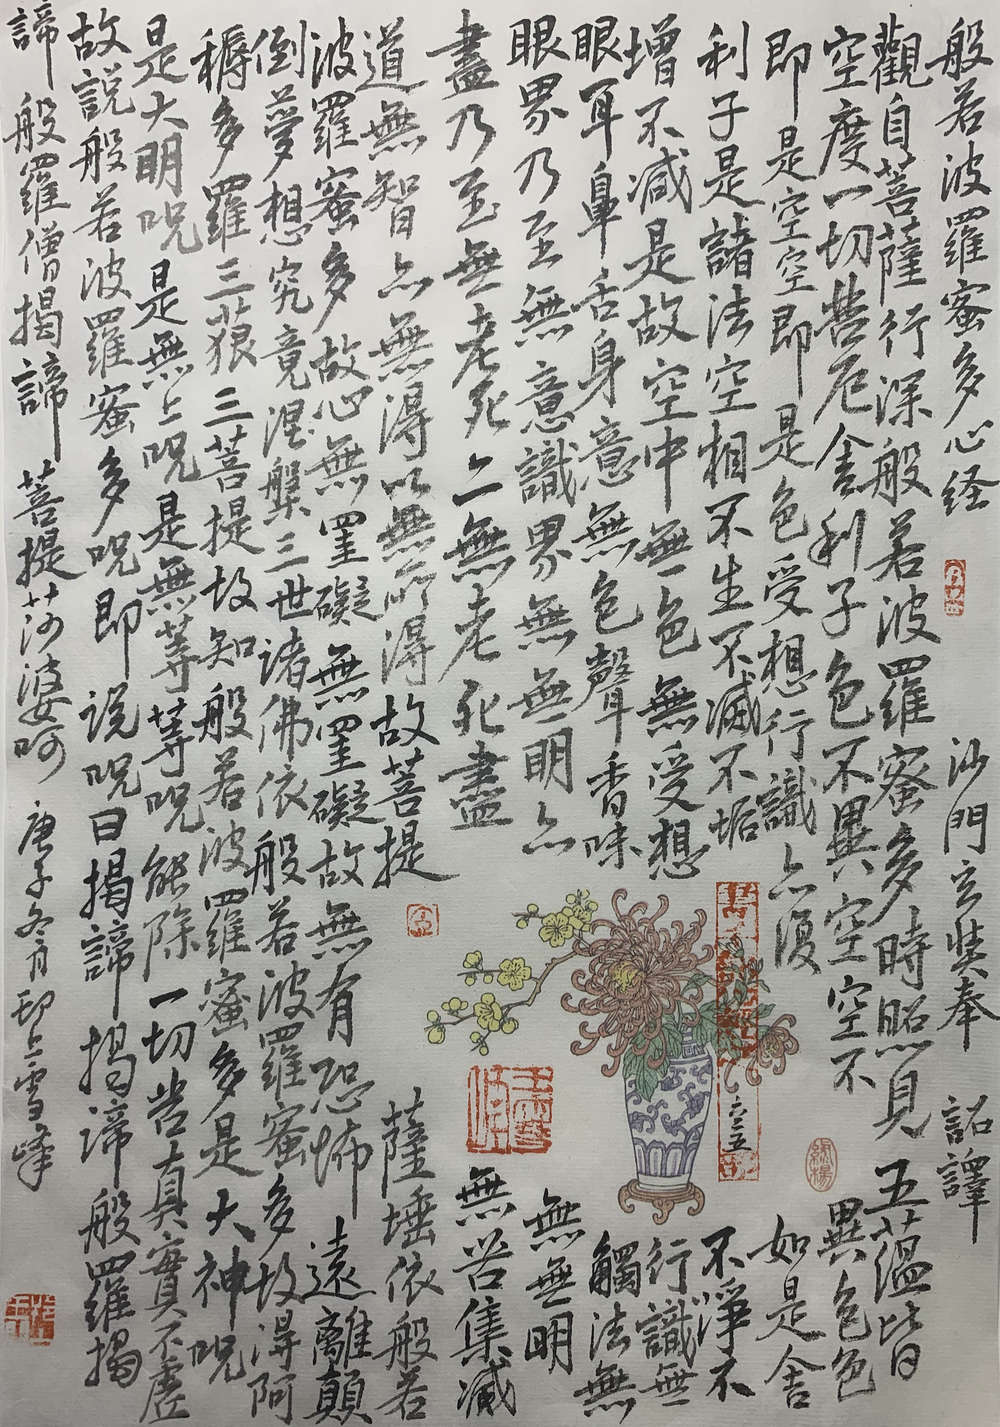 般若波羅蜜多心経 沙門玄奘奉 詔譯
觀自菩薩行深般若波羅蜜多時照見五蘊皆
空度一切苦厄舍利子色不異空空不異色色
即是空空即是色受想行識亦復如是舍
利子是諸法空相不生不滅不垢不淨不
增不減是故空中無色無受想行識無
眼耳鼻舌身意無色聲香味觸法無
眼界乃至無意識界無無明亦無無明
盡乃至無老死亦無老死盡無苦集滅
道無智亦無得以無所得故菩提薩埵依般若
波羅蜜多故心無罣礙無罣礙故無有恐怖遠離顛
倒夢想究竟涅槃三世诸佛依般若波羅蜜多故得阿
耨多羅三藐三菩提故知般若波羅蜜多是大神呪
是大明呪是無上呪是無等等呪能除一切苦真實不虛
故説般若波羅蜜多呪即说呪曰揭諦揭諦般羅揭
諦般羅僧揭諦菩提莎婆呵 庚子冬月邙上雪峰